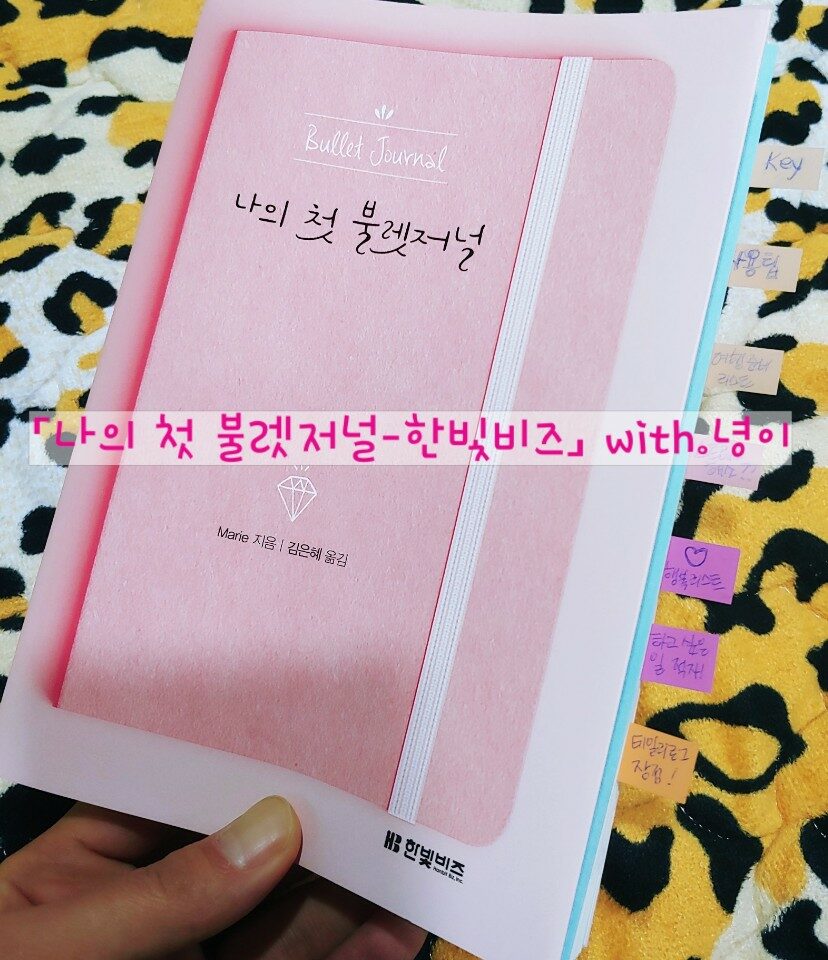 Bullet Journal
나의 첫 불렛저널
「나의 첫 불렛저널-한빛비즈」 with.녕이
Marie 지음 | 김은혜 옮김
HB 한빛비즈
Hanbit Biz, Inc.
Key
사용팁
리스트
♡
행복리스트
하고 싶은
일 적재!
데일리로그
장점!